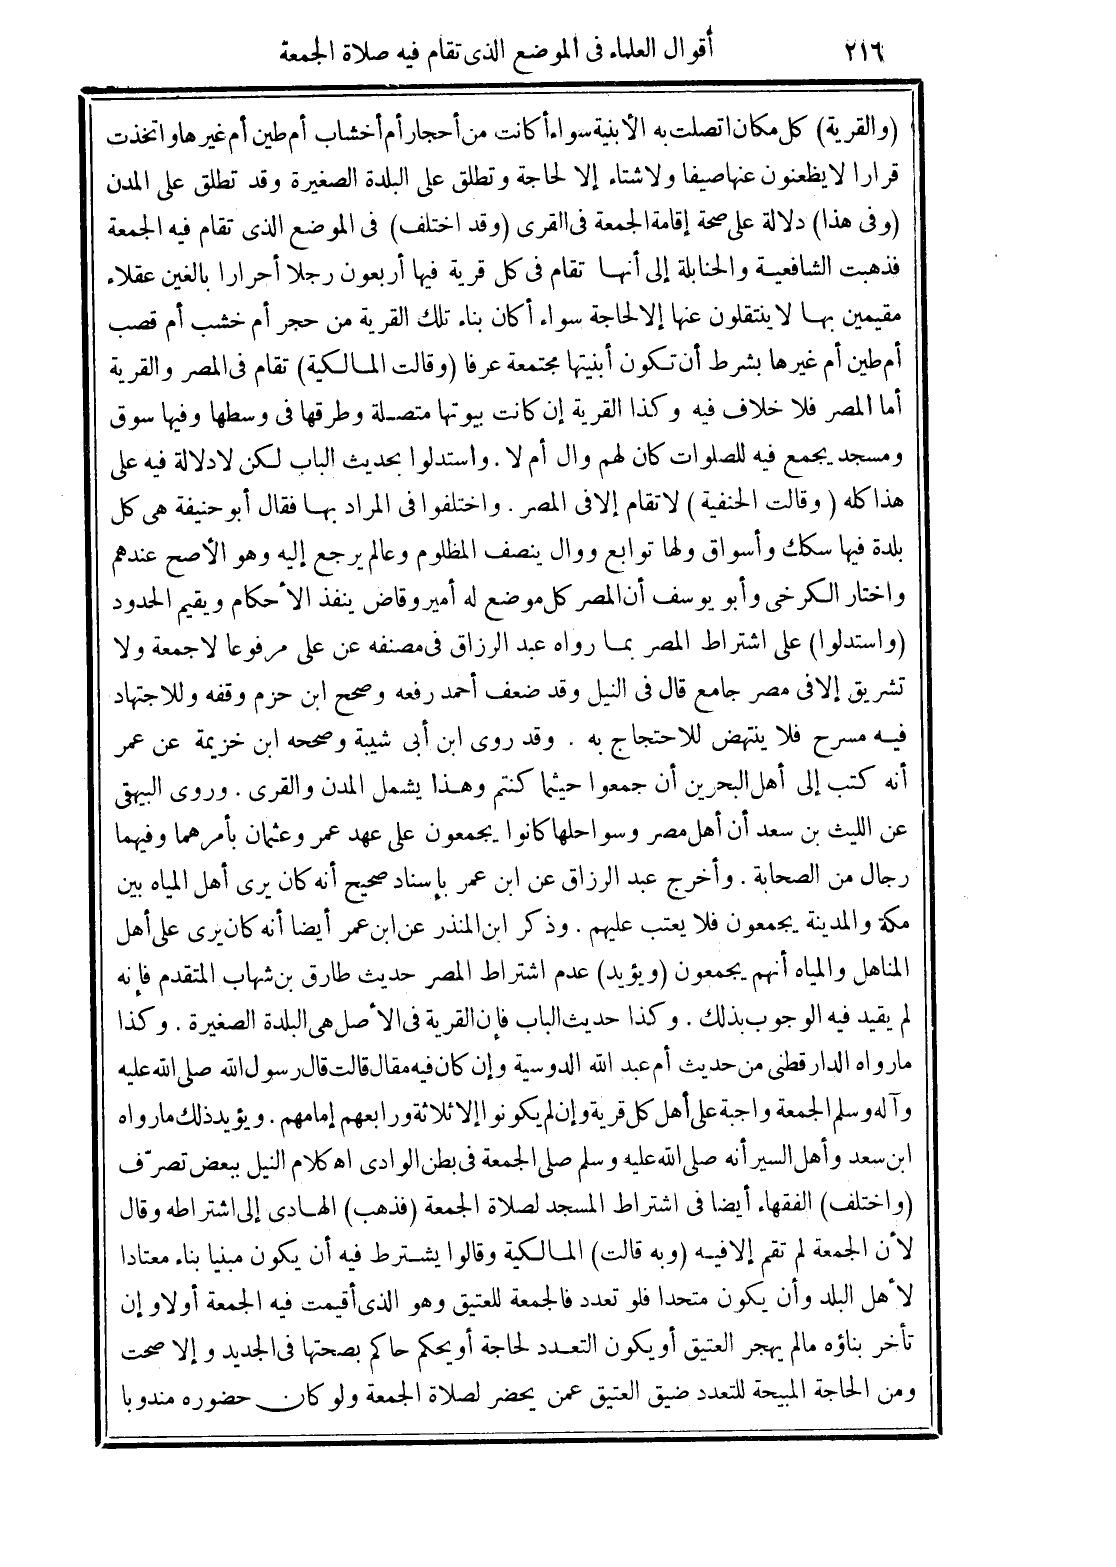 ٢١٦ أقوال العلماء فى الموضع الذى تقام فيه صلاة الجمعة
(والقرية) كل مكان اتصلت به الأبنية سواء أكانت من أحجار أم أخشاب أم طين أم غيرها واتخذت
قرارا لا يظعنون عنها صيفا ولا شتاء إلا لحاجة وتطلق على البلدة الصغيرة وقد تطلق على المدن
(وفى هذا) دلالة على صحة إقامة الجمعة فى القرى (وقد اختلف) فى الموضع الذى تقام فيه الجمعة
فذهبت الشافعية والحنابلة إلى أنها تقام فى كل قرية فيها أربعون رجلا أحرارا بالغين عقلاء
مقيمين بها لا ينتقلون عنها إلا لحاجة سواء أكان بناء تلك القرية من حجر أم خشب أم قصب
أم طين أم غيرها بشرط أن تكون أبنيتها مجتمعة عرفا (وقالت المالكية) تقام فى المصر والقرية
أما المصر فلا خلاف فيه وكذا القرية إن كانت بيوتها متصلة وطرقها فى وسطها وفيها سوق
ومسجد يجمع فيه للصلوات كان لهم وال أم لا. واستدلوا بحديث الباب لكن لا دلالة فيه على
هذا كله (وقالت الحنفية) لا تقام إلا فى المصر. واختلفوا فى المراد بها فقال أبو حنيفة هى كل
بلدة فيها سكك وأسواق ولها توابع ووال ينصف المظلوم وعالم يرجع إليه وهو الأصح عندهم
واختار الكرخى وأبو يوسف أن المصر كل موضع له أمير وقاض ينفذ الأحكام ويقيم الحدود
(واستدلوا) على اشتراط المصر بما رواه عبد الرزاق فى مصنفه عن على مرفوعا لا جمعة ولا
تشريق إلا فى مصر جامع قال فى النيل وقد ضعف أحمد رفعه وصحح ابن حزم وقفه وللاجتهاد
فيه مسرح فلا ينتهض للاحتجاج به . وقد روى ابن أبى شيبة وصححه ابن خزيمة عن عمر
أنه كتب إلى أهل البحرين أن جمعوا حيثما كنتم وهذا يشمل المدن والقرى . وروى البيهقى
عن الليث بن سعد أن أهل مصر وسواحلها كانوا يجمعون على عهد عمر وعثمان بأمرهما وفيهما
رجال من الصحابة . وأخرج عبد الرزاق عن ابن عمر بإسناد صحيح أنه كان يرى أهل المياه بين
مكة والمدينة يجمعون فلا يعتب عليهم . وذكر ابن المنذر عن ابن عمر أيضا أنه كان يرى على أهل
المناهل والمياه أنهم يجمعون (ويؤيد) عدم اشتراط المصر حديث طارق بن شهاب المتقدم فإنه
لم يقيد فيه الوجوب بذلك . وكذا حديث الباب فإن القرية فى الأصل هى البلدة الصغيرة . وكذا
ما رواه الدارقطنى من حديث أم عبد الله الدوسية وإن كان فيه مقال قالت قال رسول الله صلى الله عليه
وآله وسلم الجمعة واجبة على أهل كل قرية وإن لم يكونوا إلا ثلاثة ورابعهم إمامهم . ويؤيد ذلك ما رواه
ابن سعد وأهل السير أنه صلى الله عليه وسلم صلى الجمعة فى بطن الوادى اه كلام النيل ببعض تصرّف
(واختلف) الفقهاء أيضا فى اشتراط المسجد لصلاة الجمعة (فذهب) الهادى إلى اشتراطه وقال
لأن الجمعة لم تقم إلا فيه (وبه قالت) المالكية وقالوا يشترط فيه أن يكون مبنيا بناء معتادا
لأهل البلد وأن يكون متحدا فلو تعدد فالجمعة للعتيق وهو الذى أقيمت فيه الجمعة أولا وإن
تأخر بناؤه مالم يهجر العتيق أو يكون التعدد لحاجة أو يحكم حاكم بصحتها فى الجديد وإلا صحت
ومن الحاجة المبيحة للتعدد ضيق العتيق عمن يحضر لصلاة الجمعة ولو كان حضوره مندوبا